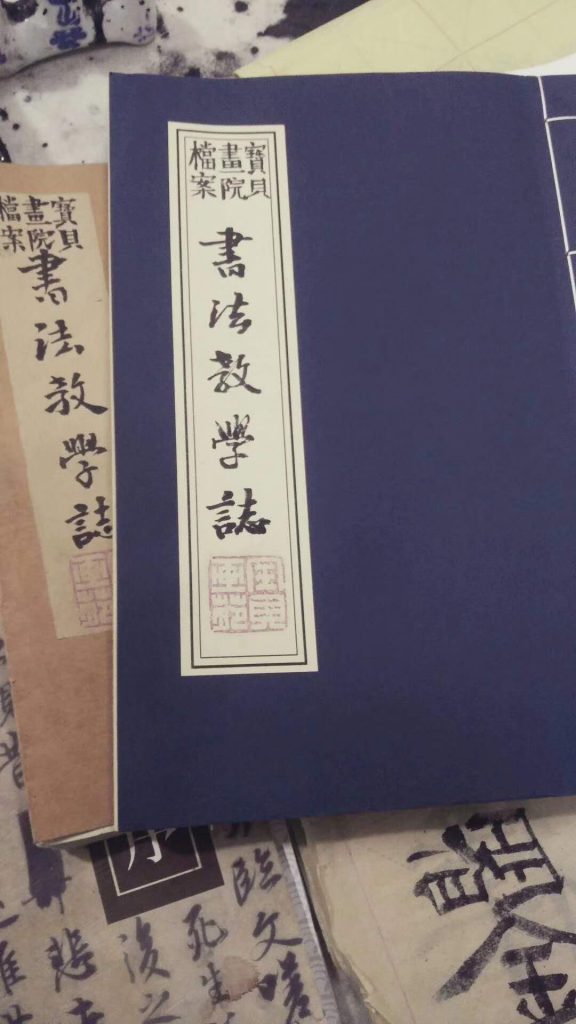 寶貝
畫院
檔案
書法教學誌
寶貝
畫院
檔案
書法教學誌
臨文嗟
死生
後之
悲